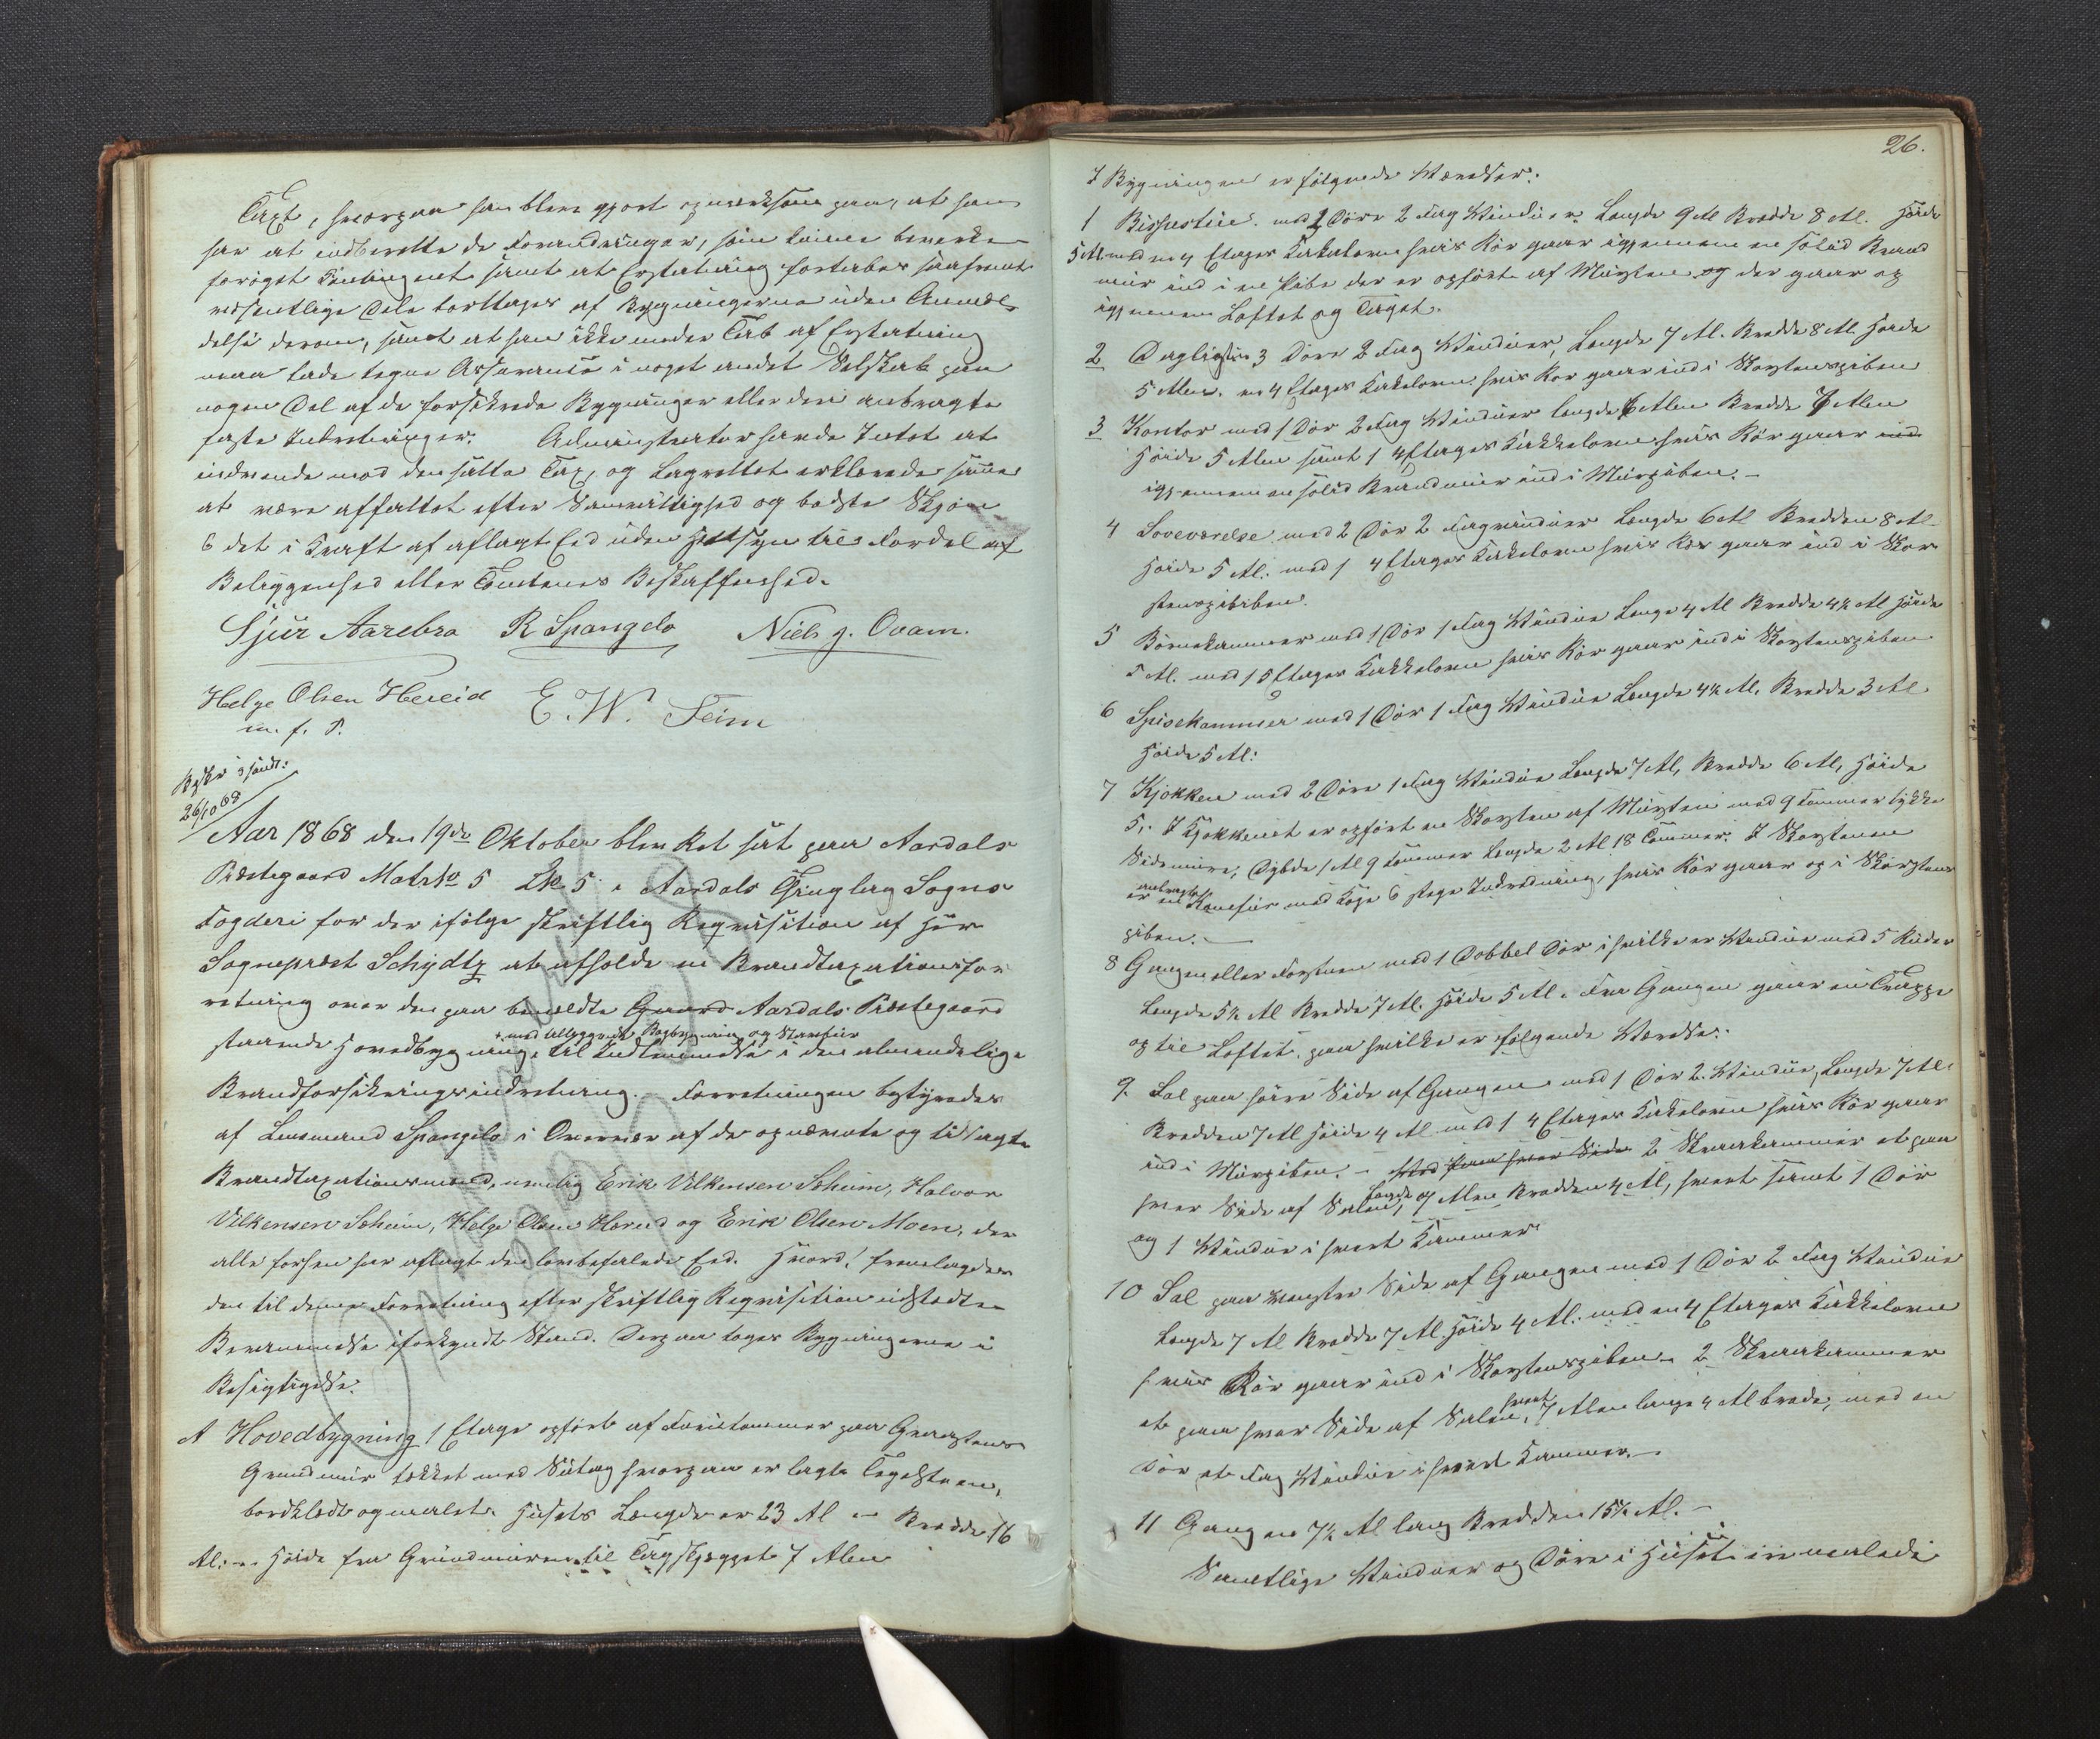 Taxt, hvorpaa han blev gjort opmærksom paa, at han
har at indberette de Forandringer, som kunne bevirke
forøget Contingent samt at Erstatning fortabes saafremt
væsentlige Dele borttages af Bygningerne uden Anmel-
delse derom, samt at han ikke under Tab af Erstatning
maa lade tegne Assurance i noget andet Selskab paa
nogen Del af de forsikrede Bygninger eller deri anbragte
faste Indretninger. Administrator havde Intet at
indvende mod den satte Taxt, og Lagrettet erklærede samme
at være affattet efter Samvittighed og bedste Skjøn
6 det i Kraft af aflagt Eed uden Hensyn til Fordel af
Beliggenhed eller Tomtenes Beskaffenhed.
Sjur Aarebro R Spangelo Niels J. Ovam.
Helge Olsen Hereid E. W. Seim
m. f. P.
Beskr. s sendt:
26/10 68
Aar 1868 den 19de Oktober blev Ret sat paa Aardals
Præstegaard Matr No 5 Lb 5 i Aardals Thinglag Sogns
Fogderi for der ifølge skriftlig Reqvisition af Hr
Sognepræst Schydtz at afholde en Brandtaxationsfor-
retning over den paa bemeldte Gaard Aardals Præstegaard
+ med tilbyggende Bagbygning og Staarbuur
staaende Hovedbygning + til Indlemmelse i den almindelige
Brandforsikringsindretning. Forretningen bestyredes
af Lensmand Spangelo i Overvær af de opnævnte og tilsagte
Brandtaxationsmænd, nemlig Erik Vilkensen Seheim, Halvor
Vilkensen Seheim, Helge Olsen Hereid og Erik Olsen Moen, der
alle forhen har aflagt den lovbefalede Eed. Hvord! fremlagdes
den til denne Forretning efter skriftlig Reqvisition udstedte
Berammelse i forkyndt Stand. Derpaa toges Bygningerne i
Besigtigelse.
A Hovedbygning 1 Etage opført af Furutømmer paa Graastens
Grundmuur tækket med Sutag hvorpaa er lagte Tegelsteen,
bordklædt og malet. Husets Længde er 23 Al – Bredde 16
Al: – Høide fra Grundmuren til Tagskjægget 7 Alen
26.
I Bygningen er følgende Værelser:
1 Bispestue med 3 Døre 2 Fag Vinduer. Længde 9 Al Bredde 8 Al. Høide
5 Al. med en 4 Etages Kakelovn hvis Rør gaar igjennem en solid Brand
muur ind i en Pibe der er opført af Mursten og der gaar op
igjennem Loftet og Taget.
2 Dagligstue 3 Døre 2 Fag Vinduer, Længde 7 Al. Bredde 8 Al. Høide
5 Alen. en 4 Etages Kakelovn hvis Rør gaar ind i Skorstenspiben
3 Kontor med 1 Dør 2 Fag Vinduer Længde 6 Alen Bredde 7 Alen
Høide 5 Alen samt 1 4 Etages Kakkelovn hvis Rør gaar ind
igjennem en solid Brandmuur ind i Murpiben. –
4 Soveværelse med 2 Dør 2 Fag vinduer Længde 6 Al Bredden 8 Al
Høide 5 Al: med 1 4 Etages Kakelovn hvis Rør gaar ind i Skor-
stenspibiben.
5 Børnekammer med 1 Dør 1 Fag Vindue Længe 4 Al Bredde 4½ Al Høide
5 Al. med 1 5 Etages Kakkelovn hvis Rør gaar ind i Skorstenspiben
6 Spisekammer med 1 Dør 1 Fag Vindue Længde 4½ Al. Bredde 3 Al
Høide 5 Al:
7 Kjøkken med 2 Døre 1 Fag Vindue Længde 7 Al, Bredde 6 Al, Høide
5,. I Kjøkkenet er opført en Skorsten af Mursten med 9 Tommer tykke
Sidemure, Dybde 1 Al 9 Tommer Længde 2 Al 18 Tommer. I Skorstenen
anbragt
er en Komfur med Koge 6 stege Indredning, hvis Rør gaar op i Skorstens
piben. –
8 Gangen eller Forstuen med 1 Dobbel Dør i hvilke er Vindue med 5 Ruder
Længde 5½ Al Bredde 7 Al. Høide 5 Al. Fra Gangen gaar en Trappe
op til Loftet, paa hvilke er følgende Værelse:
9. Sal paa høire Side af Gangen med 1 Dør 2. Vindue, Længde 7 Al.
Bredden 7 Al Høide 4 Al med 1 4 Etages Kakelovn hvis Rør gaar
ind i Murpiben. – Med paa hver Side 2 Skraakammer et paa
hver Side af Salen, Længde 7 Alen Bredden 4 Al, hvert samt 1 Dør
og 1 Vindue i hvert Kammer
10 Sal paa venstre Side af Gangen med 1 Dør 2 Fag Vindue
Længde 7 Al Bredde 7 Al. Høide 4 Al. med en 4 Etages Kakkelovn
hvis Rør gaar ind i Skorstenspiben. 2 Skraakammer
et paa hver Side af Salen, hvert 7 Alen lange 4 Al brede, med en
Dør et Fag Vindue i hvert Kammer. –
11 Gang en 7½ Al lang Bredden 15½ Al. –
Samtlige Vinduer og Døre i Huset ere malede